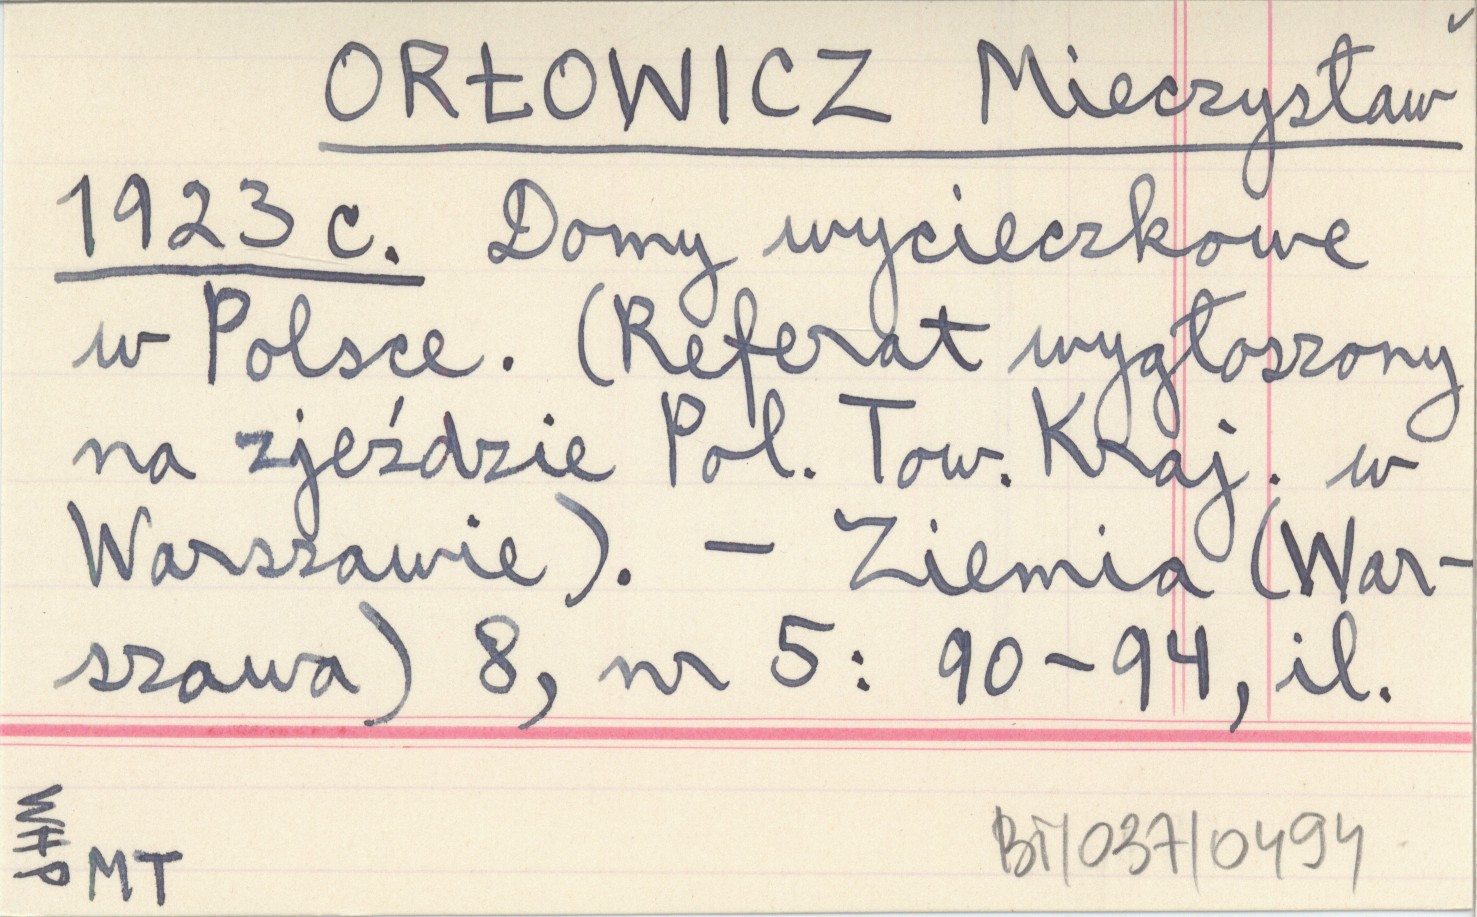 ORŁOWICZ Mieczysław
1923 c. Domy wycieczkowe
w Polsce. (Referat wygłoszony
na zjeździe Pol. Tow. Kraj. w
Warszawie). – Ziemia (War-
szawa) 8, nr 5: 90–94, il.
WHP
MT
BT/037/0494